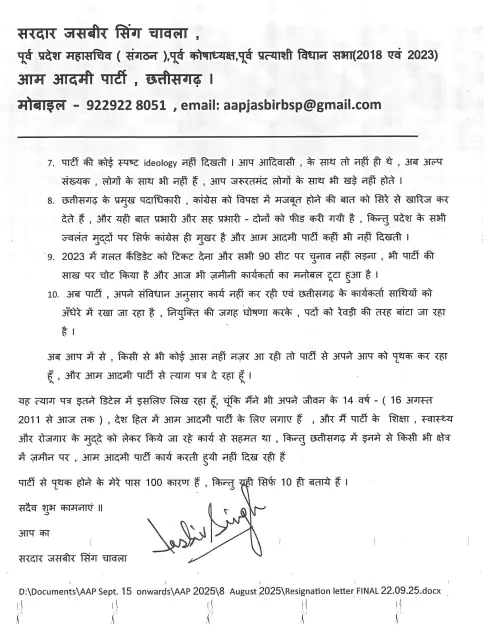 सरदार जसबीर सिंग चावला ,
पूर्व प्रदेश महासचिव ( संगठन ),पूर्व कोषाध्यक्ष,पूर्व प्रत्याशी विधान सभा(2018 एवं 2023)
आम आदमी पार्टी , छत्तीसगढ़ ।
मोबाइल – 922922 8051 , email: aapjasbirbsp@gmail.com
7. पार्टी की कोई स्पष्ट ideology नहीं दिखती । आप आदिवासी , के साथ तो नहीं ही थे , अब अल्प
संख्यक , लोगों के साथ भी नहीं हैं , आप जरूरतमंद लोगों के साथ भी खड़े नहीं होते ।
8. छत्तीसगढ़ के प्रमुख पदाधिकारी , कांग्रेस को विपक्ष में मजबूत होने की बात को सिरे से खारिज कर
देते हैं , और यही बात प्रभारी और सह प्रभारी – दोनों को फीड करी गयी है , किन्तु प्रदेश के सभी
ज्वलंत मुद्दों पर सिर्फ कांग्रेस ही मुखर है और आम आदमी पार्टी कहीं भी नहीं दिखती ।
9. 2023 में गलत कैंडिडेट को टिकट देना और सभी 90 सीट पर चुनाव नहीं लड़ना , भी पार्टी की
साख पर चोट किया है और आज भी ज़मीनी कार्यकर्ता का मनोबल टूटा हुआ है ।
10. अब पार्टी , अपने संविधान अनुसार कार्य नहीं कर रही एवं छत्तीसगढ़ के कार्यकर्ता साथियों को
अँधेरे में रखा जा रहा है , नियुक्ति की जगह घोषणा करके , पदों को रेवड़ी की तरह बांटा जा रहा
है ।
अब आप में से , किसी से भी कोई आस नहीं नज़र आ रही तो पार्टी से अपने आप को पृथक कर रहा
हूँ , और आम आदमी पार्टी से त्याग पत्र दे रहा हूँ ।
यह त्याग पत्र इतने डिटेल में इसलिए लिख रहा हूँ, चूंकि मैंने भी अपने जीवन के 14 वर्ष - ( 16 अगस्त
2011 से आज तक ) , देश हित में आम आदमी पार्टी के लिए लगाए हैं , और मैं पार्टी के शिक्षा , स्वास्थ्य
और रोजगार के मुद्दे को लेकर किये जा रहे कार्य से सहमत था , किन्तु छत्तीसगढ़ में इनमे से किसी भी क्षेत्र
में ज़मीन पर , आम आदमी पार्टी कार्य करती हुयी नहीं दिख रही हैं
पार्टी से पृथक होने के मेरे पास 100 कारण हैं , किन्तु यही सिर्फ 10 ही बताये हैं ।
सदैव शुभ कामनाएं ॥
आप का
Jasbir Singh
सरदार जसबीर सिंग चावला
D:\Documents\AAP Sept. 15 onwards\AAP 2025\8 August 2025\Resignation letter FINAL 22.09.25.docx